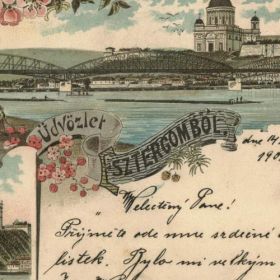 Üdvözlet
ESZTERGOMBÓL.
dne 14.
190
Welectěny Pane!
Přijměte ode mne srdečné
lístek. Bylo mi velkým